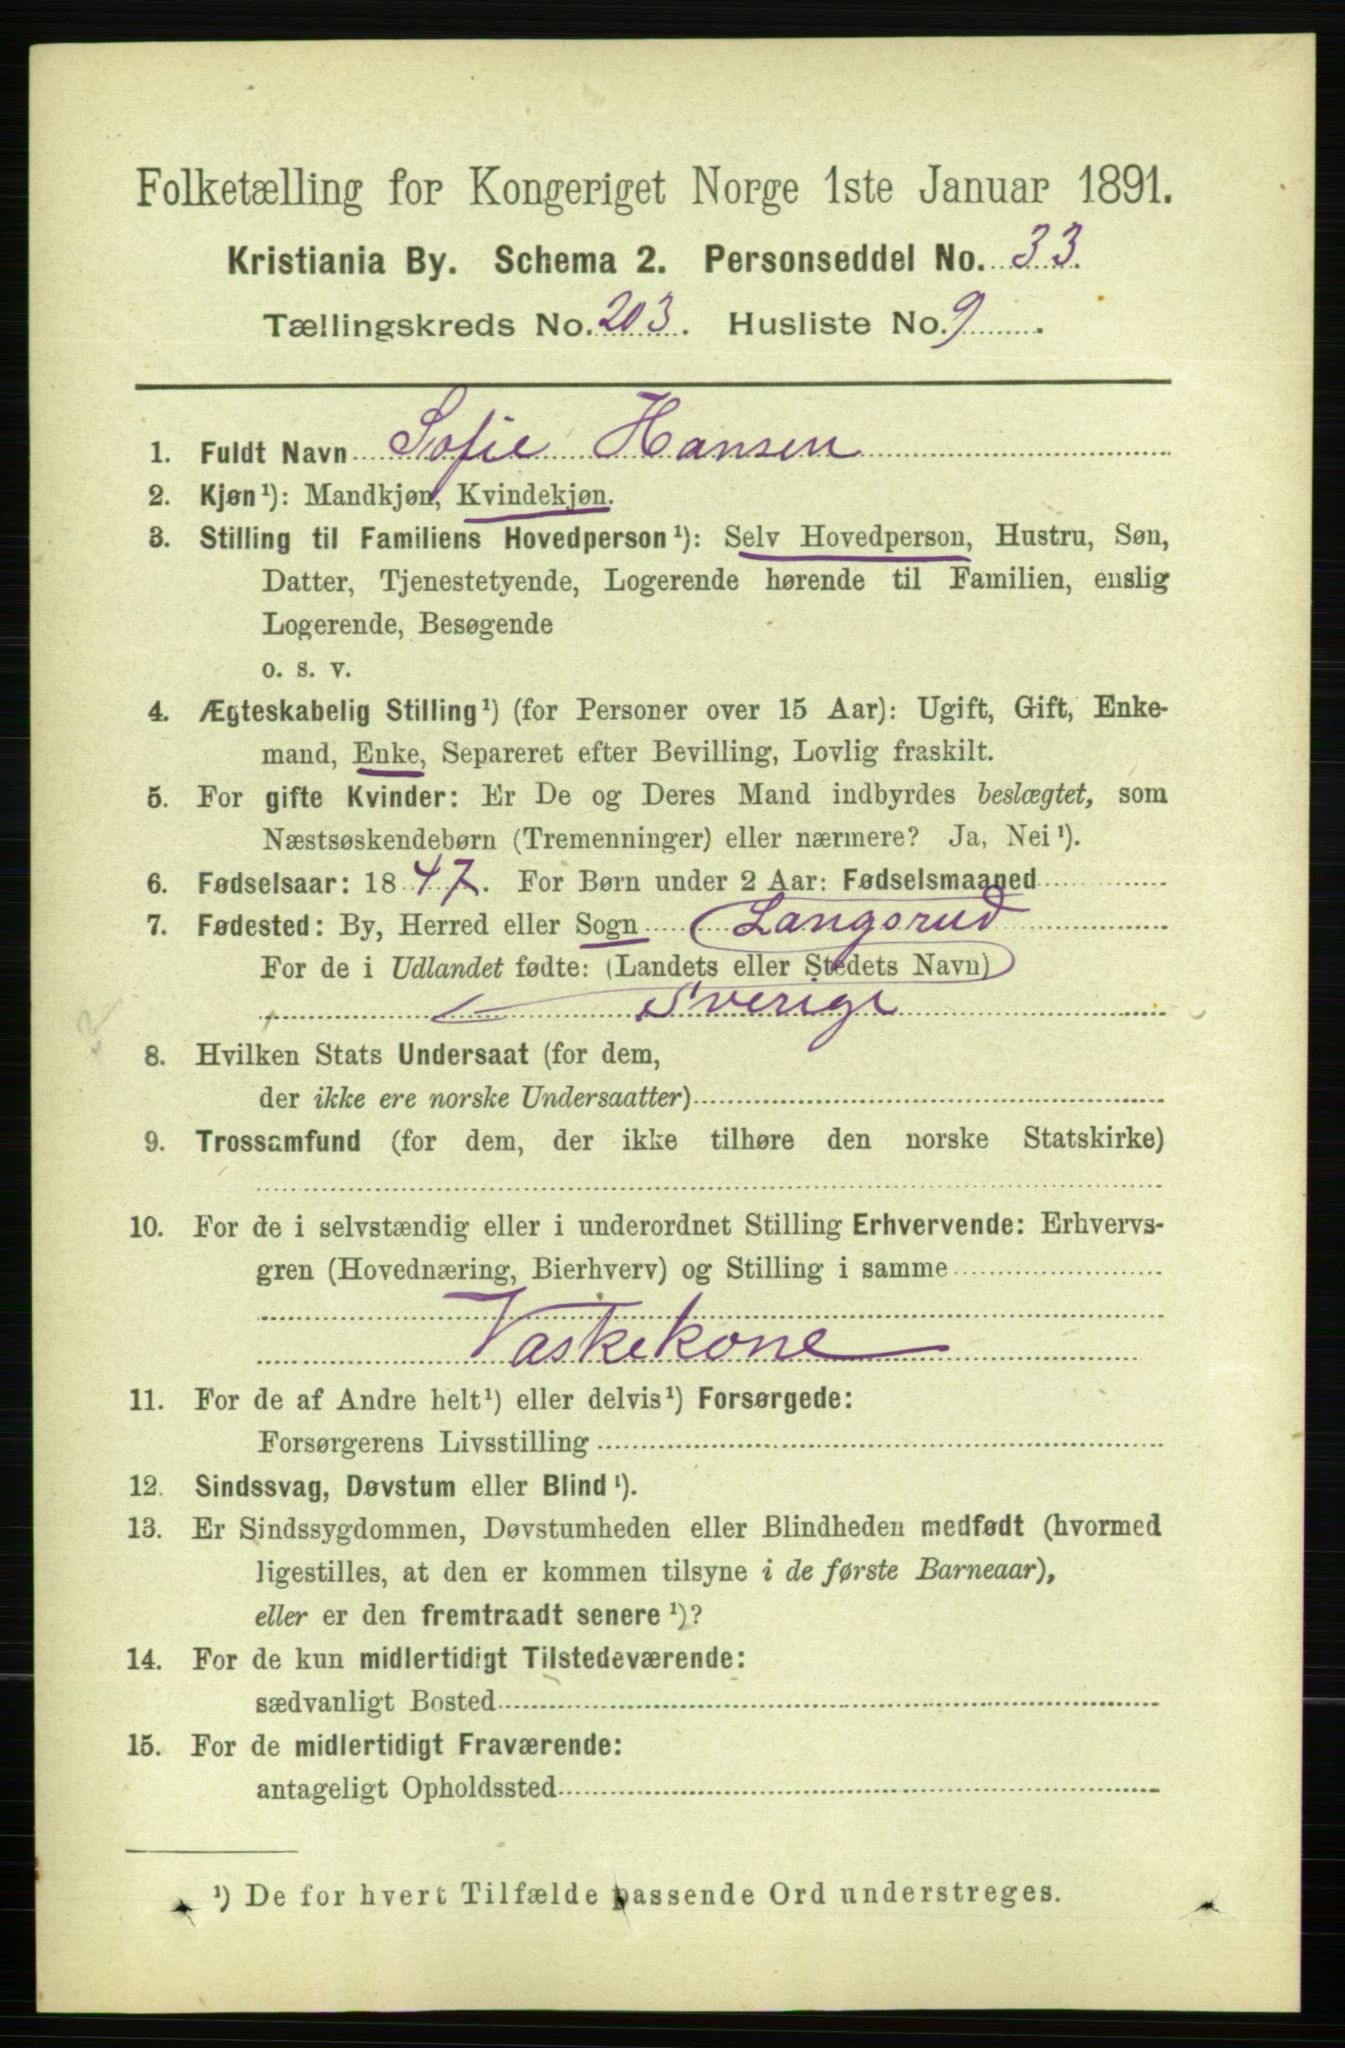 Folketælling for Kongeriget Norge 1ste Januar 1891.
Kristiania By. Schema 2. Personseddel No. 33.
Tællingskreds No. 203. Husliste No. 9.
1. Fuldt Navn Sofie Hansen
2. Kjøn¹): Mandkjøn, Kvindekjøn.
3. Stilling til Familiens Hovedperson¹): Selv Hovedperson, Hustru, Søn,
Datter, Tjenestetyende, Logerende hørende til Familien, enslig
Logerende, Besøgende
o. s. v.
4. Ægteskabelig Stilling¹) (for Personer over 15 Aar): Ugift, Gift, Enke-
mand, Enke, Separeret efter Bevilling, Lovlig fraskilt.
5. For gifte Kvinder: Er De og Deres Mand indbyrdes beslægtet, som
Næstsøskendebørn (Tremenninger) eller nærmere? Ja, Nei¹).
6. Fødselsaar: 1847. For Børn under 2 Aar: Fødselsmaaned
7. Fødested: By, Herred eller Sogn Langsrud
For de i Udlandet fødte: (Landets eller Stedets Navn)
Sverige
8. Hvilken Stats Undersaat (for dem,
der ikke ere norske Undersaatter)
9. Trossamfund (for dem, der ikke tilhøre den norske Statskirke)
10. For de i selvstændig eller i underordnet Stilling Erhvervende: Erhvervs-
gren (Hovednæring, Bierhverv) og Stilling i samme
Vaskekone
11. For de af Andre helt¹) eller delvis¹) Forsørgede:
Forsørgerens Livsstilling
12. Sindssvag, Døvstum eller Blind¹).
13. Er Sindssygdommen, Døvstumheden eller Blindheden medfødt (hvormed
ligestilles, at den er kommen tilsyne i de første Barneaar),
eller er den fremtraadt senere¹)?
14. For de kun midlertidigt Tilstedeværende:
sædvanligt Bosted
15. For de midlertidigt Fraværende:
antageligt Opholdssted
¹) De for hvert Tilfælde passende Ord understreges.